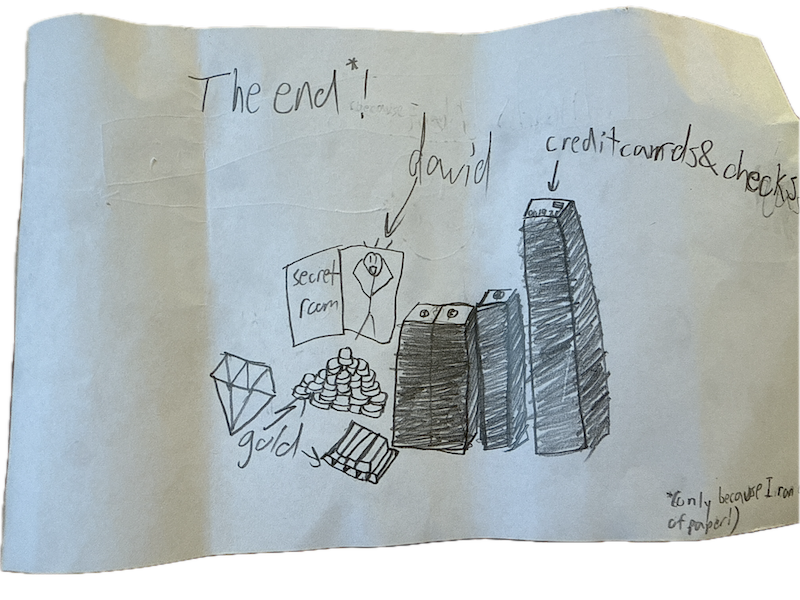 The end*!
david
creditcards&checks
secret
room
gold
*(only because I ran
of paper!)